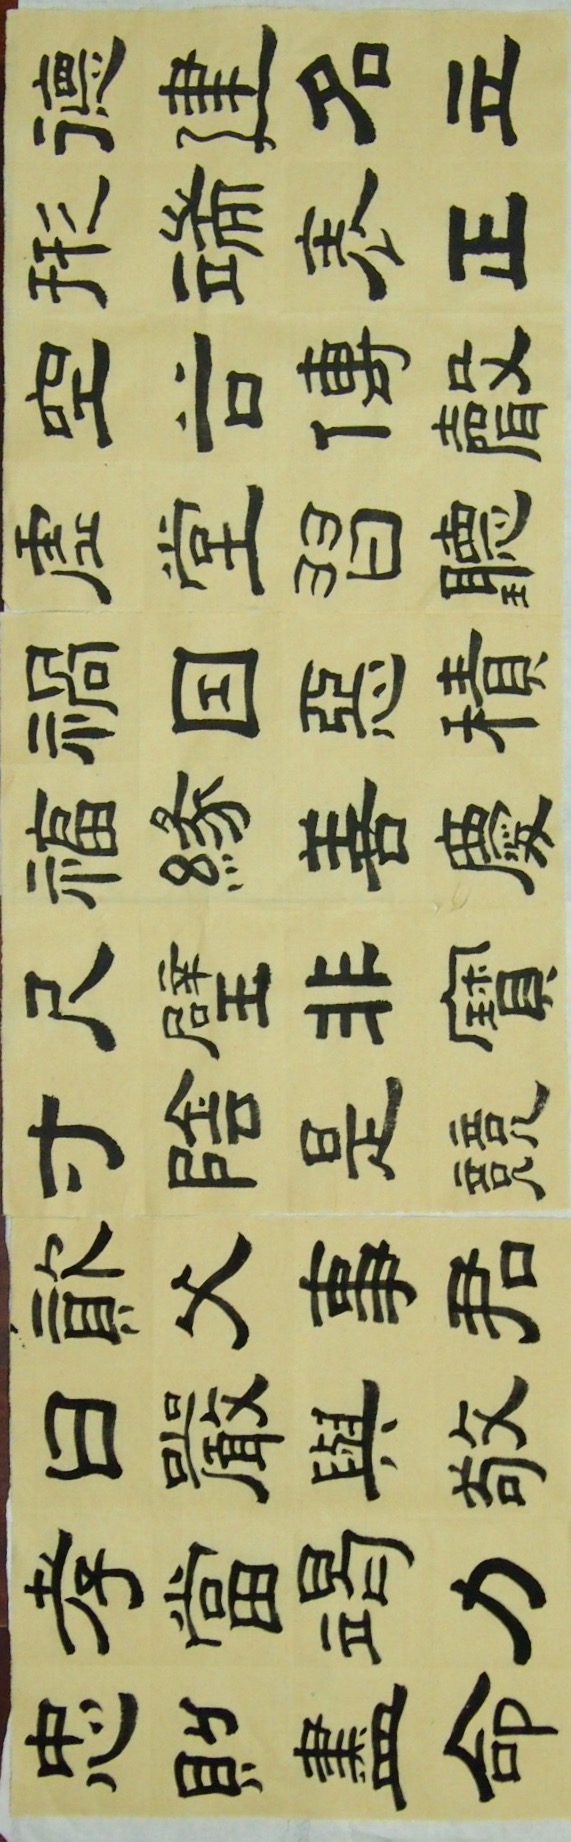 德建名立
形端表正
空谷傳聲
虛堂習聽
禍因惡積
福緣善慶
尺璧非寶
寸陰是競
資父事君
曰嚴與敬
孝當竭力
忠則盡命